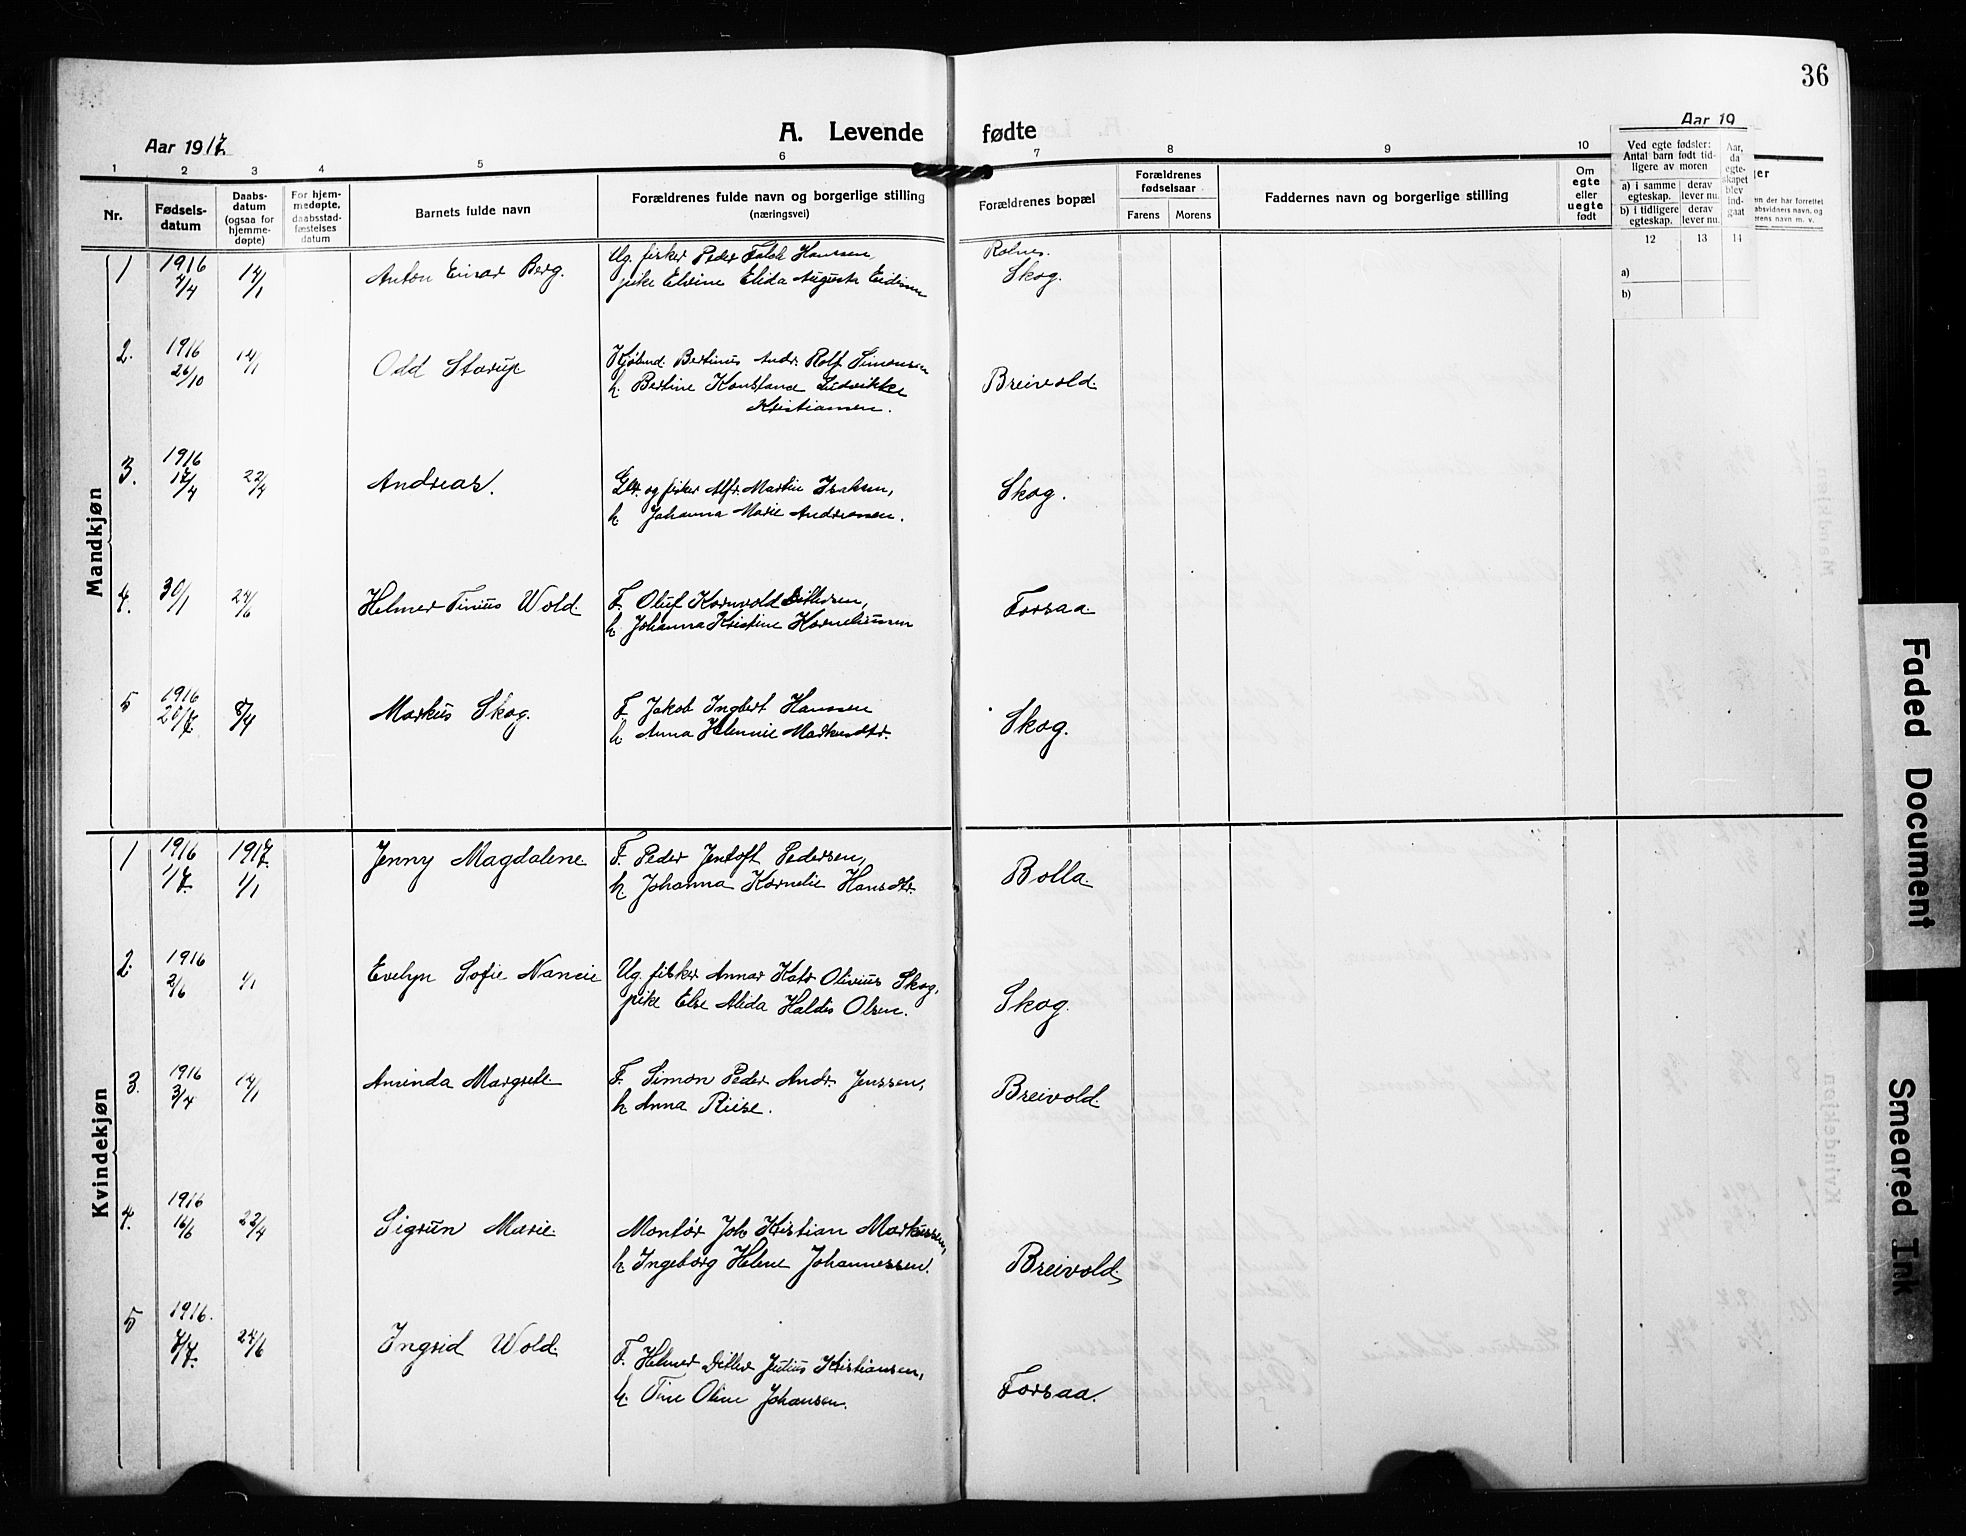 36
Aar 1917
A. Levende fødte
Aar 19
1 2 3 4 5 6 7 8 9 10
Nr.
Fødsels-
datum
Daabs-
datum
(ogsaa for
hjemme-
døpte)
For hjem-
medøpte,
daabsstad-
fæstelses
datum
Barnets fulde navn
Forældrenes fulde navn og borgerlige stilling
(næringsvei)
Forældrenes bopæl
Forældrenes
fødselsaar
Farens Morens
Faddernes navn og borgerlige stilling
Om
egte
eller
uegte
født
Ved egte fødsler:
Antal barn født tid-
ligere av moren
a) i samme
egteskap.
derav
lever nu.
b) i tidligere
egteskap.
derav
lever nu.
Aar,
da
egte-
skapet
blev
ind-
gaat
12 13 14
a)
b)
Mandkjøn
1 1916 2/4 14/1 Anton Einar Berg. Ug. fisker Peder Falch Hanssen, Rolnes.
pike Elvine Elida Augusta Skog.
2. 1916 26/10 14/1 Odd Storup Bertinus Andr. Rolf Simonsen
h. Bertine Konstanse Ludvikke Breivold.
Kristiansen.
3. 1916 17/4 22/4 Andreas. og fisker Alfr. Martin Isaksen, Skog.
h. Johanna Marie Andreasen.
4. 30/1 24/6 Helmer Tinius Wold. F. Oluf Kornvold Ditlefsen, Forsaa
h. Johanna Kristine Korneliussen
5 1916 20/7 8/4 Markus Skog. F. Jakob Ingbert Hanssen Skog.
h. Anna Markusdtr.
Kvindekjøn
1 1916 1/7 1917 1/1 Jenny Magdalene F. Peder Jentoft Pedersen, Bolla.
h. Johanna Kornelie Hansdtr.
2. 1916 2/6 1/1 Evelyn Sofie Nancie Ug. fisker Annar Olivius Skog, Skog.
pike Else Alida Haldis Olsen.
3. 1916 3/4 14/1 Aminda Margrete F. Simon Peder Andr. Jenssen, Breivold.
h. Anna Riise.
4. 1916 16/6 22/4 Sigrun Marie Montør Joh Kristian Markussen, Breivold.
h. Ingeborg Helene Johannessen.
5 1916. 7/7. 24/6 Ingrid Wold. F. Helmer Ditlev Julius Kristiansen, Forsaa.
h. Tine Oline Johansen.
Faded Document
Smeared Ink